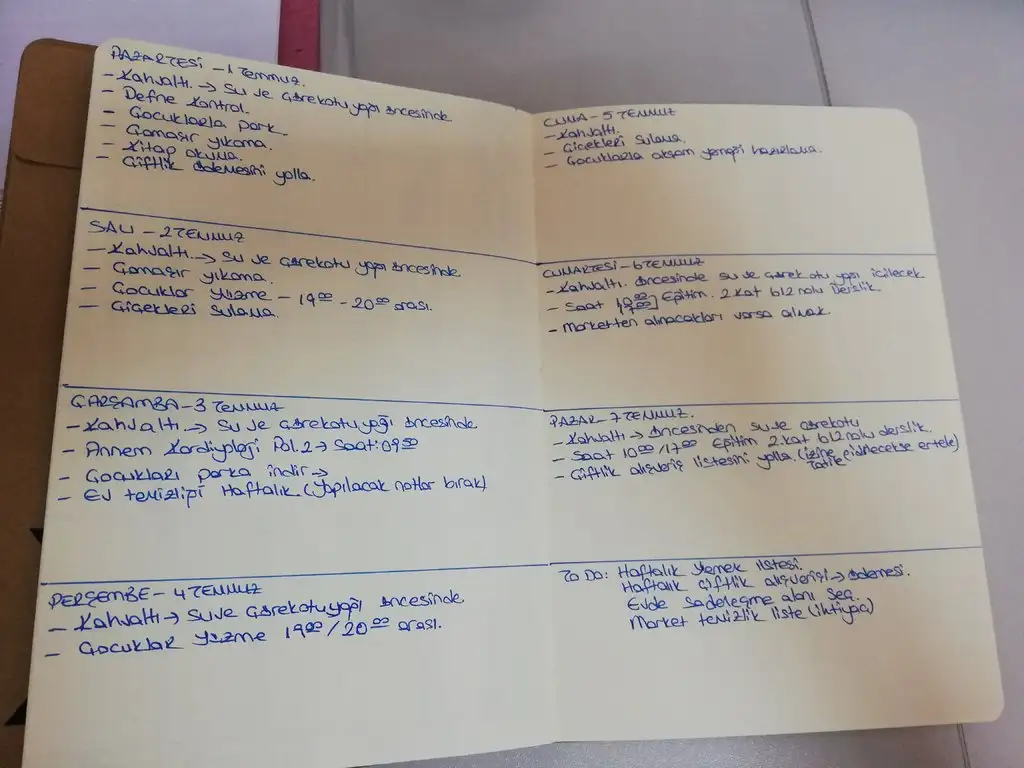 PAZARTESİ - 1 TEMMUZ.
- Kahvaltı. → Su ve Çörekotu yağı öncesinde
- Defne Kontrol.
- Çocuklarla park.
- Çamaşır yıkama.
- Kitap okuma.
- Çiftlik ödemesini yolla.
SALI - 2 TEMMUZ
- Kahvaltı. → Su ve Çörekotu yağı öncesinde
- Çamaşır yıkama.
- Çocuklar Yüzme - 19⁰⁰ - 20⁰⁰ arası.
- Çiçekleri Sulama.
ÇARŞAMBA - 3 TEMMUZ
- Kahvaltı → Su ve Çörekotu yağı öncesinde
- Annem Kardiyoloji Pol. 2 → Saat: 09⁰⁰
- Çocukları parka indir →
- Ev temizliği Haftalık (Yapılacak notlar bırak)
PERŞEMBE - 4 TEMMUZ
- Kahvaltı → Su ve Çörekotu yağı öncesinde
- Çocuklar Yüzme 19⁰⁰ / 20⁰⁰ arası.
CUMA - 5 TEMMUZ
- Kahvaltı.
- Çiçekleri Sulama.
- Çocuklarla akşam yemeği hazırlama.
CUMARTESİ - 6 TEMMUZ
- Kahvaltı. öncesinde su ve Çörek otu yağı içilecek
- Saat 10⁰⁰ 17⁰⁰] Eğitim. 2 kat b12 nolu Derslik.
- Marketten alınacakları varsa almak.
PAZAR - 7 TEMMUZ.
- Kahvaltı → öncesinden su ve çörekotu
- Saat 10⁰⁰ / 17⁰⁰ Eğitim 2 kat b12 nolu derslik.
- Çiftlik alışveriş listesini yolla. (izine gidilecekse ertele)
Tatile
To Do: Haftalık Yemek listesi.
Haftalık Çiftlik alışverişi → ödemesi.
Evde sadeleşme alanı Seç.
Market temizlik liste (ihtiyaç)